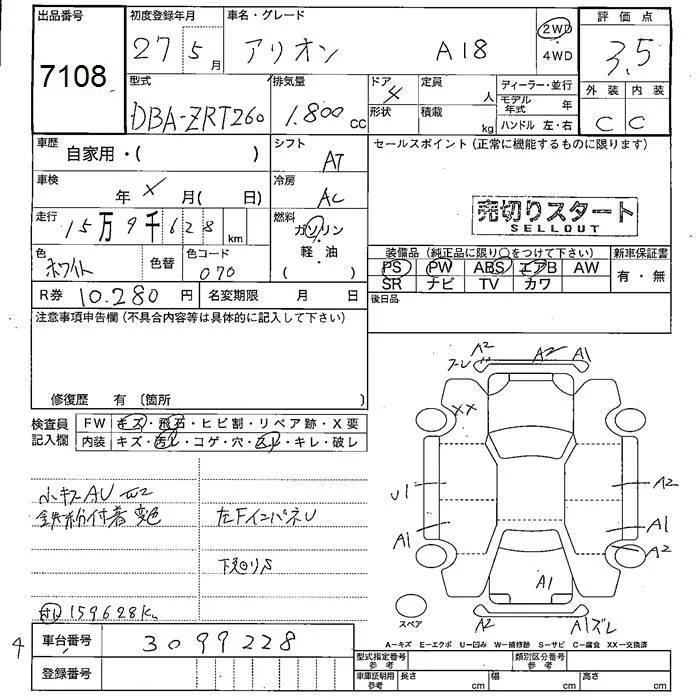 出品番号
7108
初度登録年月
27 5月
車名・グレード
アリオン A18
2WD
・
4WD
評価点
3.5
外装 内装
C C
型式
DBA-ZRT260
排気量
1.800 cc
ドア
4
形状
定員
人
積載
kg
ディーラー・並行
モデル年式 年
ハンドル 左・右
車歴
自家用・( )
シフト
AT
セールスポイント(正常に機能するものに限ります)
車検
年 X 月( 日)
冷房
AC
売切りスタート
SELLOUT
走行
15万9千628 km
燃料
ガソリン
軽・油
( )
色
ホワイト
色替
色コード
070
装備品(純正品に限り○をつけて下さい)
PS PW ABS エアB AW
SR ナビ TV カワ
新車保証書
有・無
R券 10.280 円
名変期限 月 日
後日品
注意事項申告欄(不具合内容等は具体的に記入して下さい)
修復歴 有 (箇所 )
検査員
記入欄
FW キズ・飛石・ヒビ割・リペア跡・X要
内装 キズ・汚レ・コゲ・穴・スレ・キレ・破レ
小キズAU
鉄粉付着 変色
左FインパネU
下廻りS
159628K
A2 A2 A1
XX
U1 A2
A1 A1
A2
A1
A2 A1ズレ
スペア
A-キズ E-エクボ U-凹み W-補修跡 S-サビ C-腐食 XX-交換済
4
車台番号
3099228
登録番号
型式指定番号
参考
類別区分番号
参考
車庫証明用
参考
長さ cm 幅 cm 高さ cm